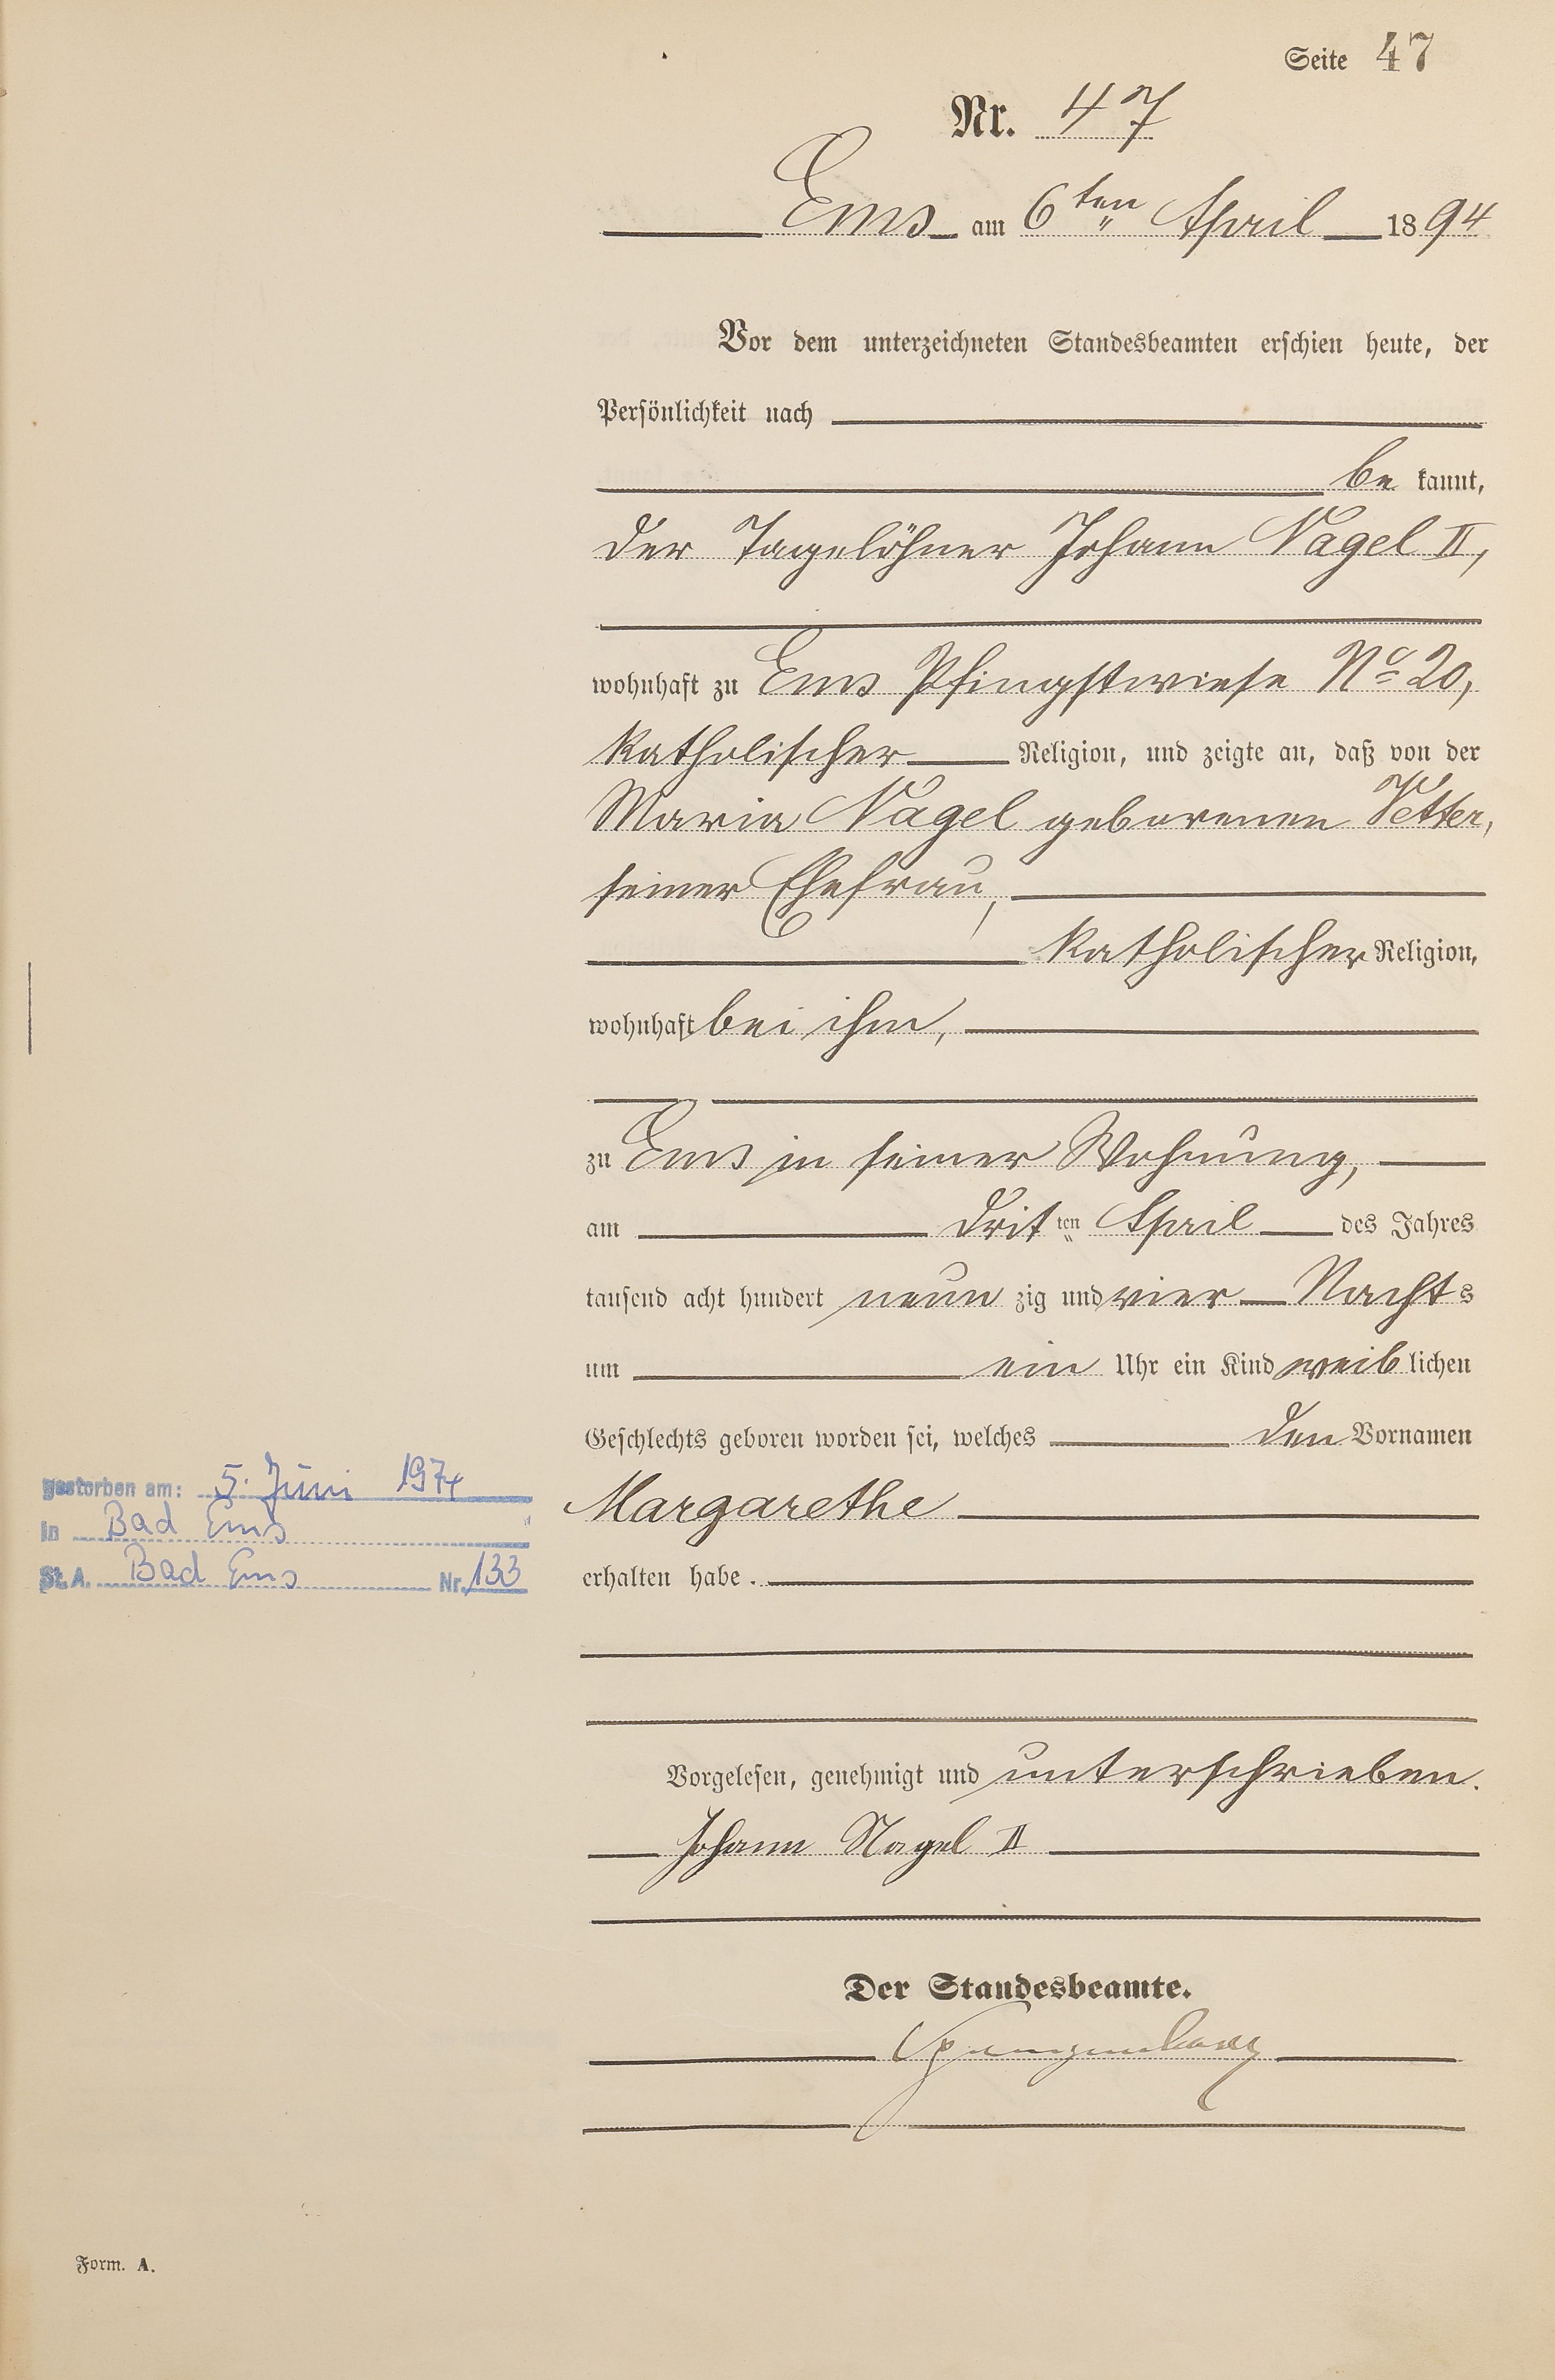 Seite 47
Nr. 47
Ems am 6ten April 1894
Vor dem unterzeichneten Standesbeamten erschien heute, der
Persönlichkeit nach
be kannt,
der Tagelöhner Johann Nagel II,
wohnhaft zu Ems Pfingstwiese No 20,
katholischer Religion, und zeigte an, daß von der
Maria Nagel geborenen Vetter,
seiner Ehefrau,
katholischer Religion,
wohnhaft bei ihm,
zu Ems in seiner Wohnung,
am dritten April des Jahres
tausend acht hundert neun zig und vier Nachts
um ein Uhr ein Kind weiblichen
Geschlechts geboren worden sei, welches den Vornamen
Margarethe
erhalten habe.
gestorben am: 5. Juni 1974
in Bad Ems
St. A. Bad Ems Nr. 133
Vorgelesen, genehmigt und unterschrieben.
Johann Nagel II
Der Standesbeamte.
Form. A.